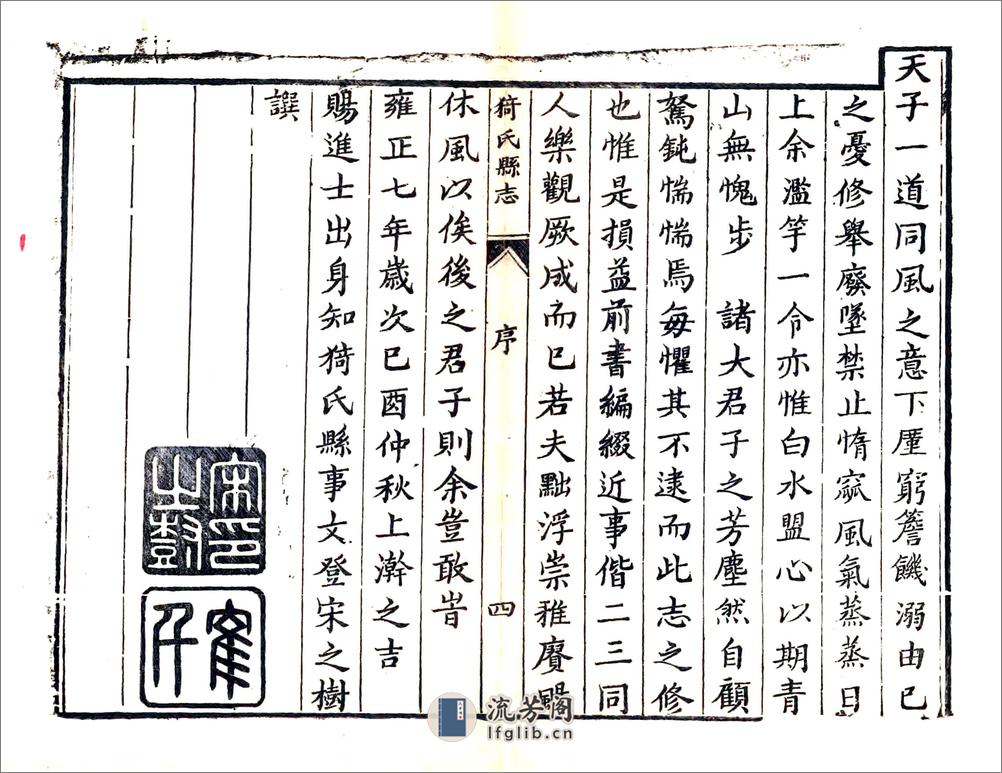 天子一道同風之意下廑窮簷饑溺由已
之憂修舉廢墜禁止惰窳風氣蒸蒸日
上余濫竽一令亦惟白水盟心以期青
山無愧步 諸大君子之芳塵然自顧
駑鈍惴惴焉每懼其不逮而此志之修
也惟是損益前書編綴近事偕二三同
人樂觀厥成而已若夫黜浮崇雅賡颺
猗氏縣志 序 四
休風以俟後之君子則余豈敢旹
雍正七年歲次已酉仲秋上澣之吉
賜進士出身知猗氏縣事文登宋之樹
譔
宋之樹印
流芳阁
lfglib.cn